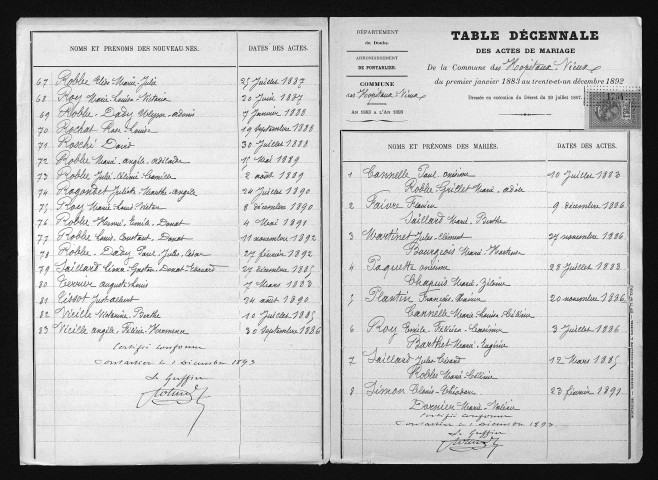 NOMS ET PRÉNOMS DES NOUVEAU-NÉS. DATES DES ACTES.
67 Roblet Elise Marie Julie 25 Juillet 1887
68 Roy Marie Louise Victoria 20 Juin 1887
69 Roblet-Dady 7 Janvier 1888
70 Rochat Rose Louise 19 septembre 1888
71 Rosché David 30 Juillet 1888
72 Roblet Marie angèle adélaïde 15 Mai 1889
73 Roblet Jules Camille 2 août 1889
74 Ragondet Juliette Marthe angèle 24 Juillet 1890
75 Roy Marie Louis Victor 8 décembre 1890
76 Roblet Henri Emile Donat 4 Mai 1891
77 Roblet Louis Constant Donat 11 novembre 1892
78 Roblet-Dady Paul Jules César 27 février 1892
79 Saillard Gaston Donat Edouard 27 décembre 1885
80 auguste Louis 7 Mars 1883
81 Tissot Just albert 24 août 1890
82 Vieille Victorine Berthe 10 Juillet 1885
83 Vieille angèle 30 septembre 1886
Certifié conforme
Pontarlier le 1 décembre 1893
Le Greffier
DÉPARTEMENT
du Doubs.
ARRONDISSEMENT
DE PONTARLIER.
COMMUNE
des Hopitaux-Vieux
AN 1883 A L'AN 1893
TABLE DÉCENNALE
DES ACTES DE MARIAGE
De la Commune des Hopitaux-Vieux
du premier janvier 1883 au trente-et-un décembre 1892
Dressée en exécution du Décret du 20 juillet 1807.
NOMS ET PRÉNOMS DES MARIÉS. DATES DES ACTES.
1 Cannelle Paul 10 Juillet 1883
Roblet Grillet Marie adèle
2 Faivre 9 décembre 1886
Saillard Marie Berthe
3 Martinet Jules Clément 27 novembre 1886
Bourgeois Marie
4 Paquette 28 Juillet 1883
Chapuis Marie
5 Plantin François Xavier 20 novembre 1886
Cannelle Marie Louise
6 Roy Emile 3 Juillet 1886
Barthet Marie Eugénie
7 Saillard Jules 12 Mars 1885
Roblet Marie
8 Simon 23 février 1891
Dornier Marie
Certifié conforme
Pontarlier le 1 décembre 1893
Le Greffier